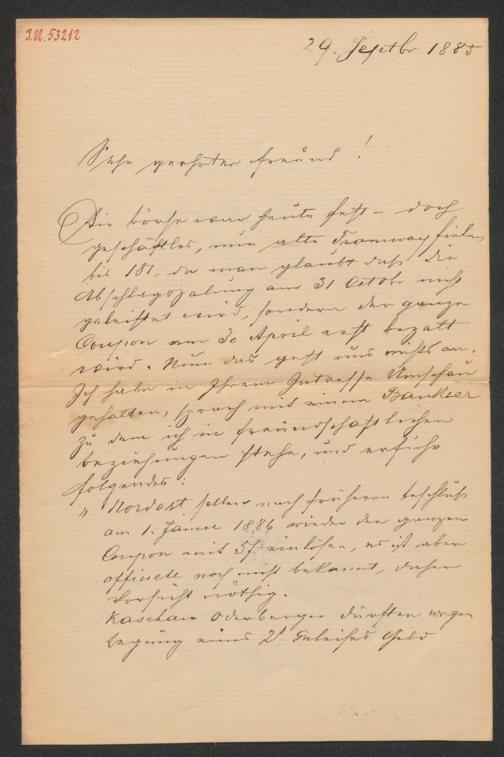 I.N. 53212
29. Septbr 1885
Sehr geehrter Freund!
Die Börse war heute fest – doch
geschäftlos, nur alte Tramway fielen
bis 181, da man glaubt daß die
Abschlagszalung am 31 Octobr nicht
geleistet wird, sondern der ganze
Coupon am 30 April erst bezalt
wird. Nun das geht uns nichts an.
Ich habe in Ihrem Intresse Umschau
gehalten, sprach mit einem Bankier
zu dem ich in freundschaftlichen
beziehungen stehe, und erfuhr
folgendes:
„Nordost sollen nach früherem beschluß
am 1. Januar 1886 wieder den ganzen
Coupon mit 5f. einlösen, es ist aber
officiell noch nicht bekannt, daher
Vorsicht nöthig.
Kaschau Oderberger dürften wegen
legung eines 2t. Geleises Geld